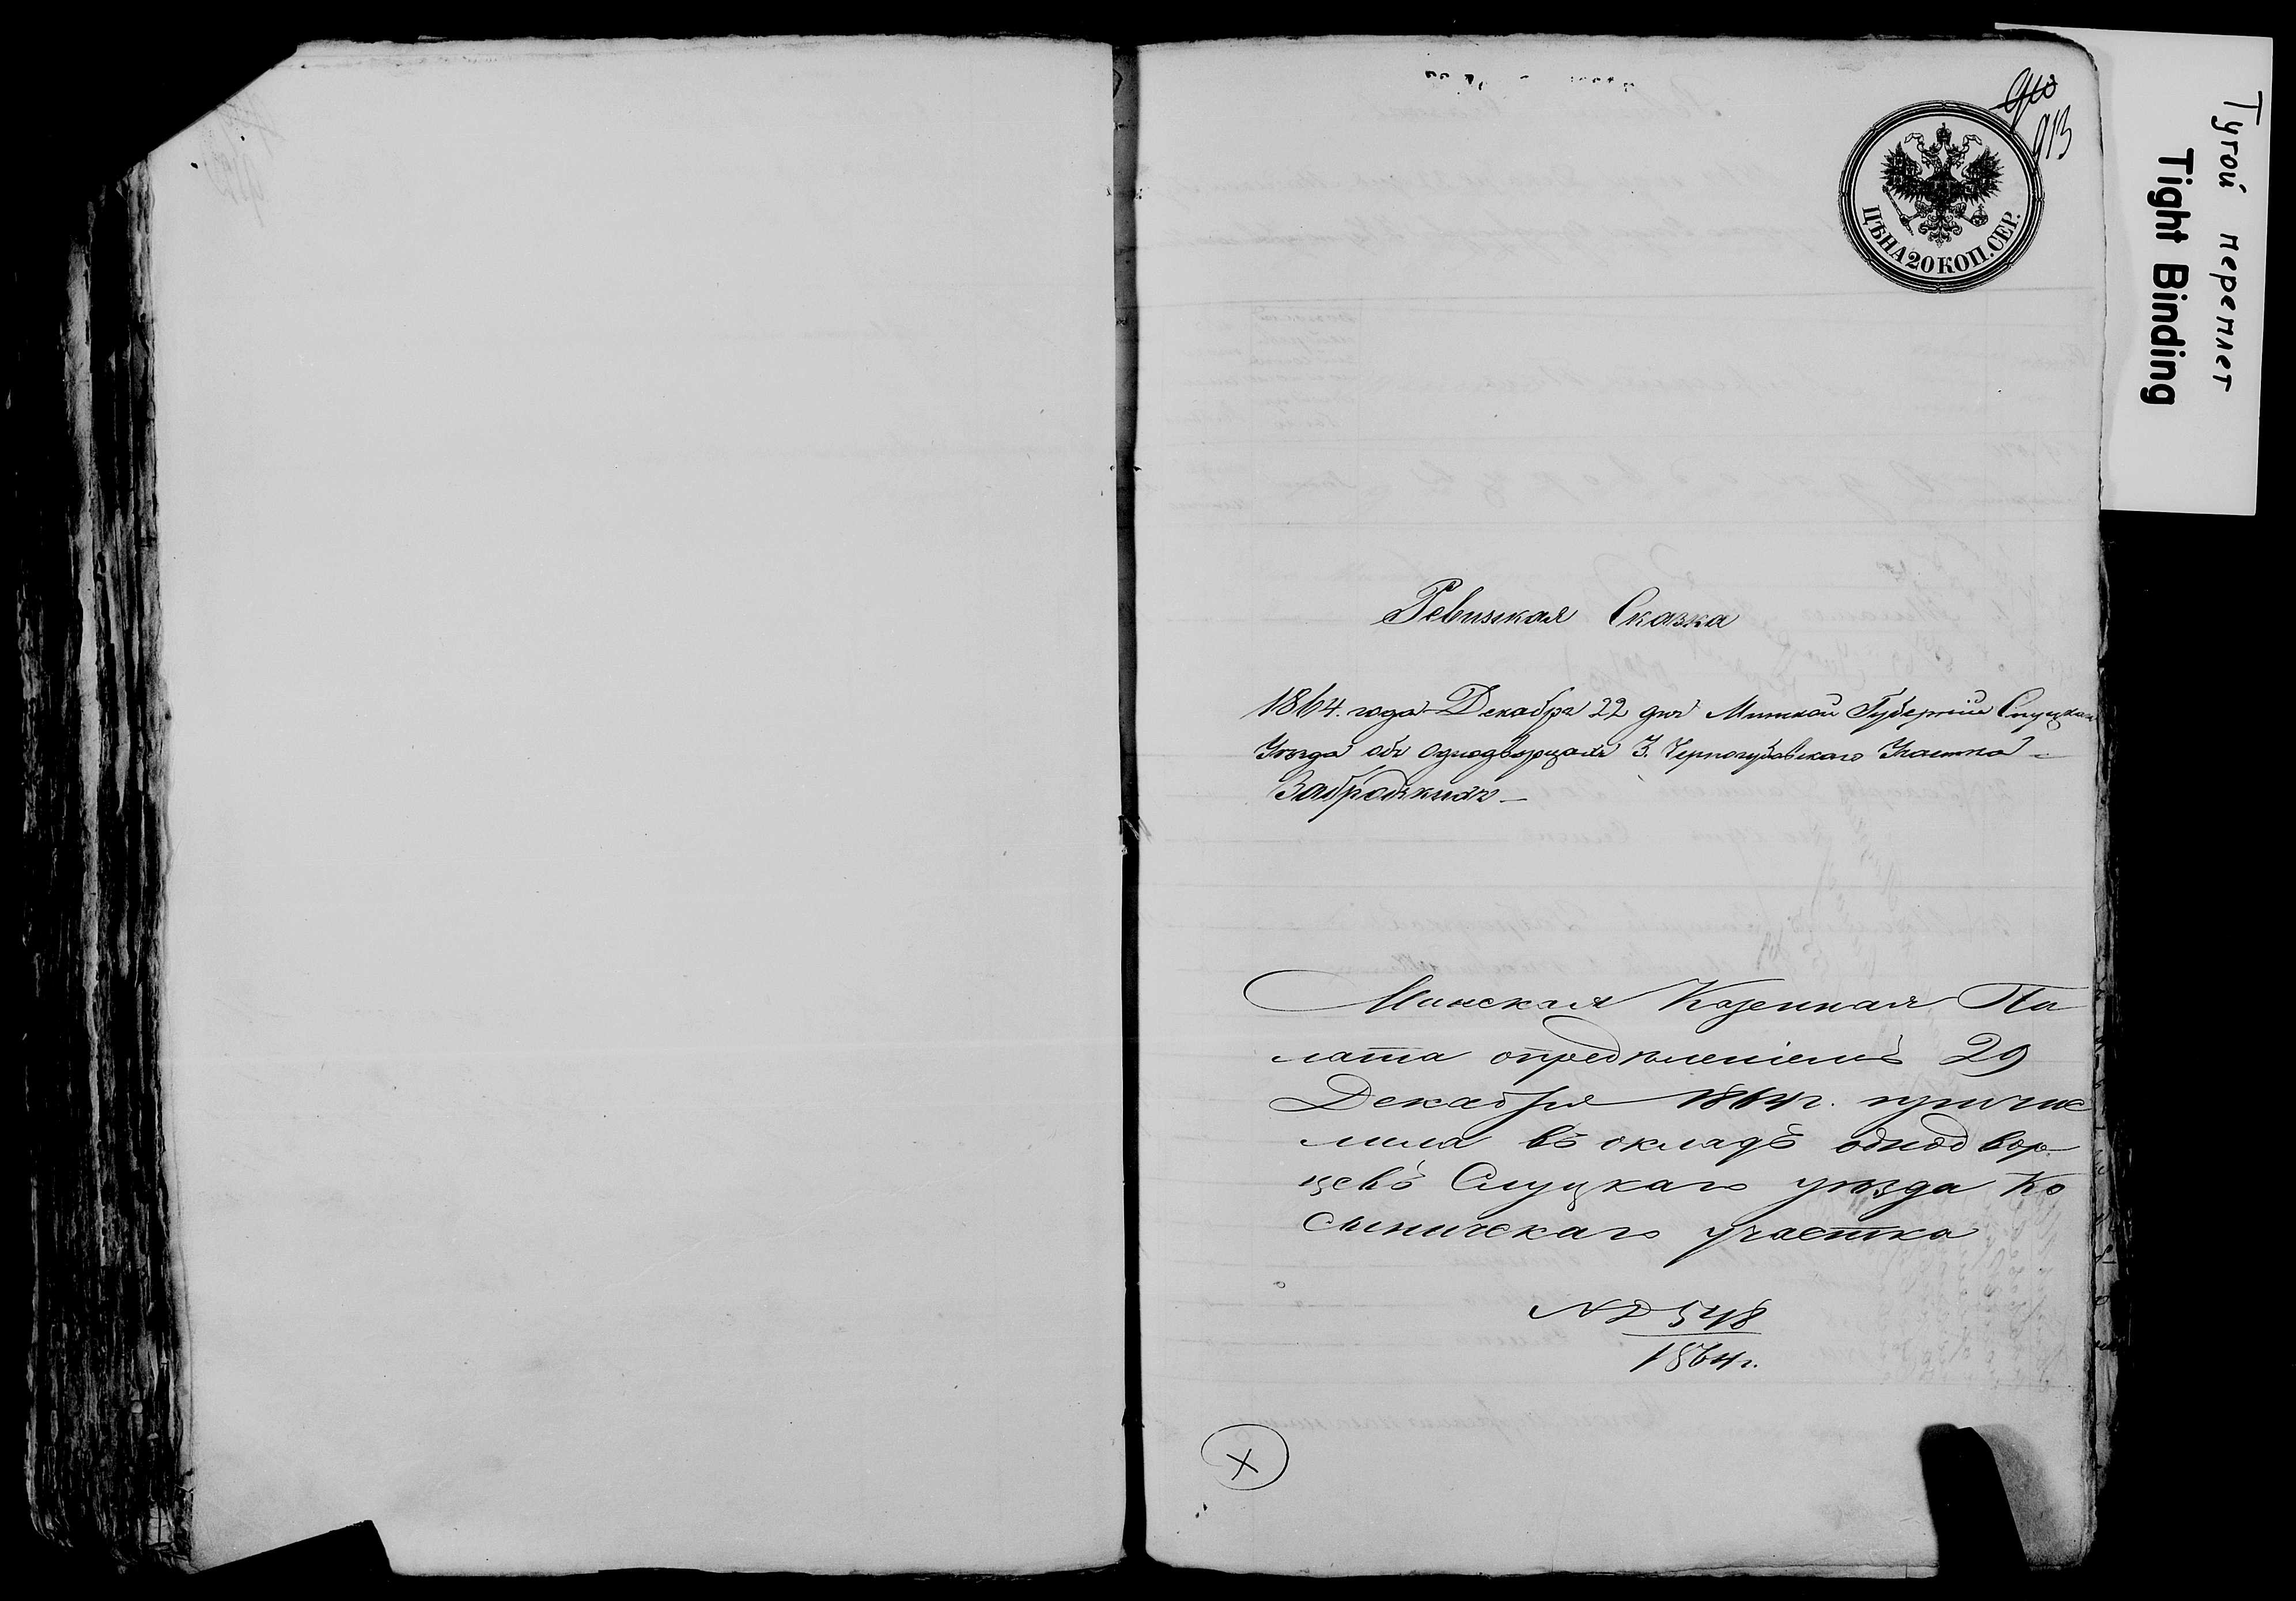 910
913
ЦѢНА 20 КОП. СЕР.
Тугой переплет
Tight Binding
Ревизкая Сказка
1864. года Декабря 22 дня Минской Губерніи Слуцкаго
Уѣзда объ однодворцахъ 3. Черногубовскаго Участка
Забродскихъ
Минская Казенная Па
лата опредѣленіемъ 29
Декабря 1864 г. причис
лила въ окладъ однодвор-
цевъ Слуцкаго уѣзда Ко
смичскаго участка
№ 548
1864 г.
X